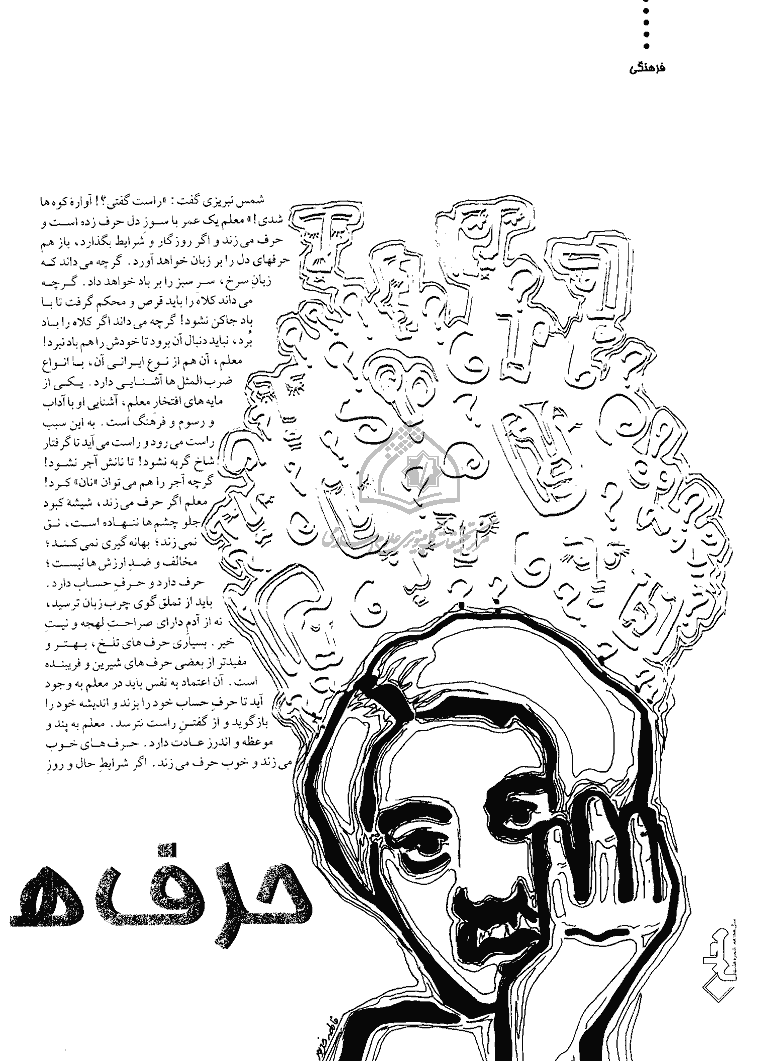 فرهنگی
شمس تبریزی گفت: «راست گفتی؟! آوارهٔ کوه ها
شدی!» معلم یک عمر با سوز دل حرف زده است و
حرف می زند و اگر روزگار و شرایط بگذارد، باز هم
حرفهای دل را بر زبان خواهد آورد. گرچه می داند که
زبان سرخ، سر سبز را بر باد خواهد داد. گرچه
می داند کلاه را باید قرص و محکم گرفت تا با
باد جاکن نشود! گرچه می داند اگر کلاه را باد
بُرد، نباید دنبال آن برود تا خودش را هم باد نبرد!
معلم، آن هم از نوع ایرانی آن، با انواع
ضرب المثل ها آشنایی دارد. یکی از
مایه های افتخار معلم، آشنایی او با آداب
و رسوم و فرهنگ است. به این سبب
راست می رود و راست می آید تا گرفتار
شاخ گربه نشود! تا نانش آجر نشود!
گرچه آجر را هم می توان «نان» کرد!
معلم اگر حرف می زند، شیشهٔ کبود
جلو چشم ها ننهاده است، نق
نمی زند؛ بهانه گیری نمی کند؛
مخالف و ضدِ ارزش ها نیست؛
حرف دارد و حرفِ حساب دارد.
باید از تملق گوی چرب زبان ترسید،
نه از آدمِ دارای صراحتِ لهجه و نیتِ
خیر. بسیاری حرف های تلخ، بهتر و
مفیدتر از بعضی حرف های شیرین و فریبنده
است. آن اعتماد به نفس باید در معلم به وجود
آید تا حرفِ حساب خود را بزند و اندیشه خود را
بازگوید و از گفتنِ راست نترسد. معلم به پند و
موعظه و اندرز عادت دارد. حرف های خوب
می زند و خوب حرف می زند. اگر شرایطِ حال و روز
حرف ه